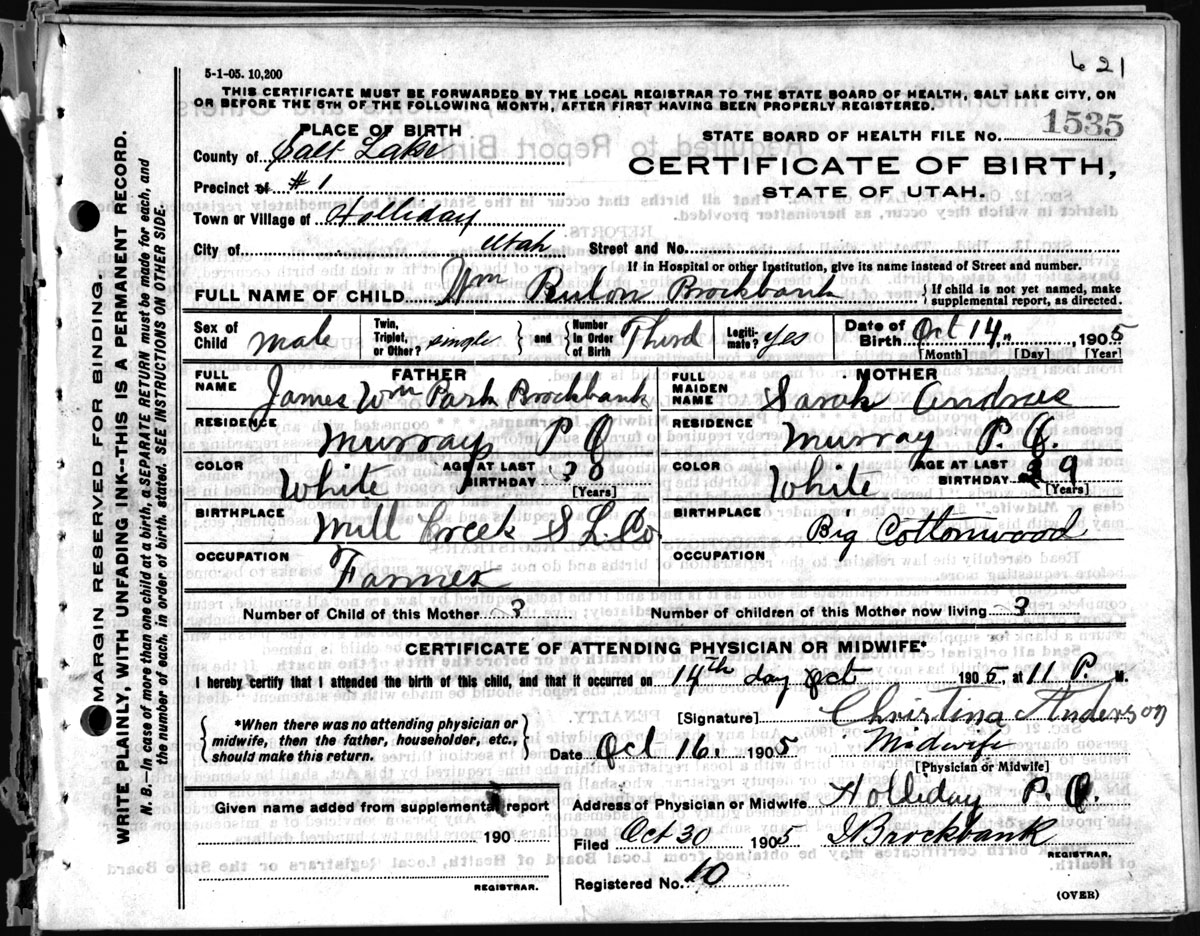 621
5-1-05. 10,200
THIS CERTIFICATE MUST BE FORWARDED BY THE LOCAL REGISTRAR TO THE STATE BOARD OF HEALTH, SALT LAKE CITY, ON
OR BEFORE THE 5TH OF THE FOLLOWING MONTH, AFTER FIRST HAVING BEEN PROPERLY REGISTERED.
PLACE OF BIRTH
STATE BOARD OF HEALTH FILE NO. 1535
County of Salt Lake
CERTIFICATE OF BIRTH,
STATE OF UTAH.
Precinct of #1
Town or Village of Holliday
City of Utah Street and No.
If in Hospital or other Institution, give its name instead of Street and number.
FULL NAME OF CHILD Wm Rulon Brockbank { If child is not yet named, make supplemental report, as directed.
Sex of Child male Twin, Triplet, or Other? single } and { Number In Order of Birth Third Legiti-mate? yes Date of Birth Oct 14, 1905
[Month] [Day] [Year]
FATHER
MOTHER
FULL NAME James Wm Park Brockbank
FULL MAIDEN NAME Sarah Andrus
RESIDENCE Murray P O
RESIDENCE Murray P. O.
COLOR White AGE AT LAST BIRTHDAY 30 [Years]
COLOR White AGE AT LAST BIRTHDAY 29 [Years]
BIRTHPLACE Mill Creek S L. Co.
BIRTHPLACE Big Cottonwood
OCCUPATION Farmer
OCCUPATION
Number of Child of this Mother 3 Number of children of this Mother now living 3
CERTIFICATE OF ATTENDING PHYSICIAN OR MIDWIFE*
I hereby certify that I attended the birth of this child, and that it occurred on 14th day Oct 1905, at 11 P. M.
{ *When there was no attending physician or midwife, then the father, householder, etc., should make this return. }
[Signature] Christina Anderson
Date Oct 16. 1905 Midwife
[Physician or Midwife]
Given name added from supplemental report
190
REGISTRAR.
Address of Physician or Midwife Holliday P. O.
Filed Oct 30 1905 I Brockbank
REGISTRAR.
Registered No. 10
(OVER)
MARGIN RESERVED FOR BINDING.
WRITE PLAINLY, WITH UNFADING INK--THIS IS A PERMANENT RECORD.
N. B.--In case of more than one child at a birth, a SEPARATE RETURN must be made for each, and
the number of each, in order of birth, stated. SEE INSTRUCTIONS ON OTHER SIDE.